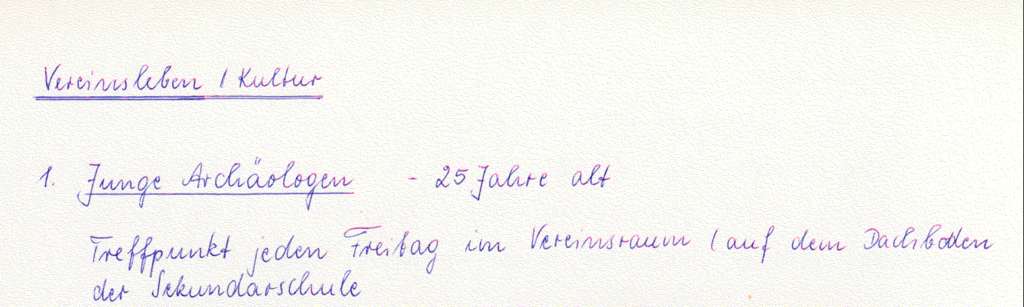 Vereinsleben / Kultur
1. Junge Archäologen - 25 Jahre alt
Treffpunkt jeden Freitag im Vereinsraum (auf dem Dachboden
der Sekundarschule